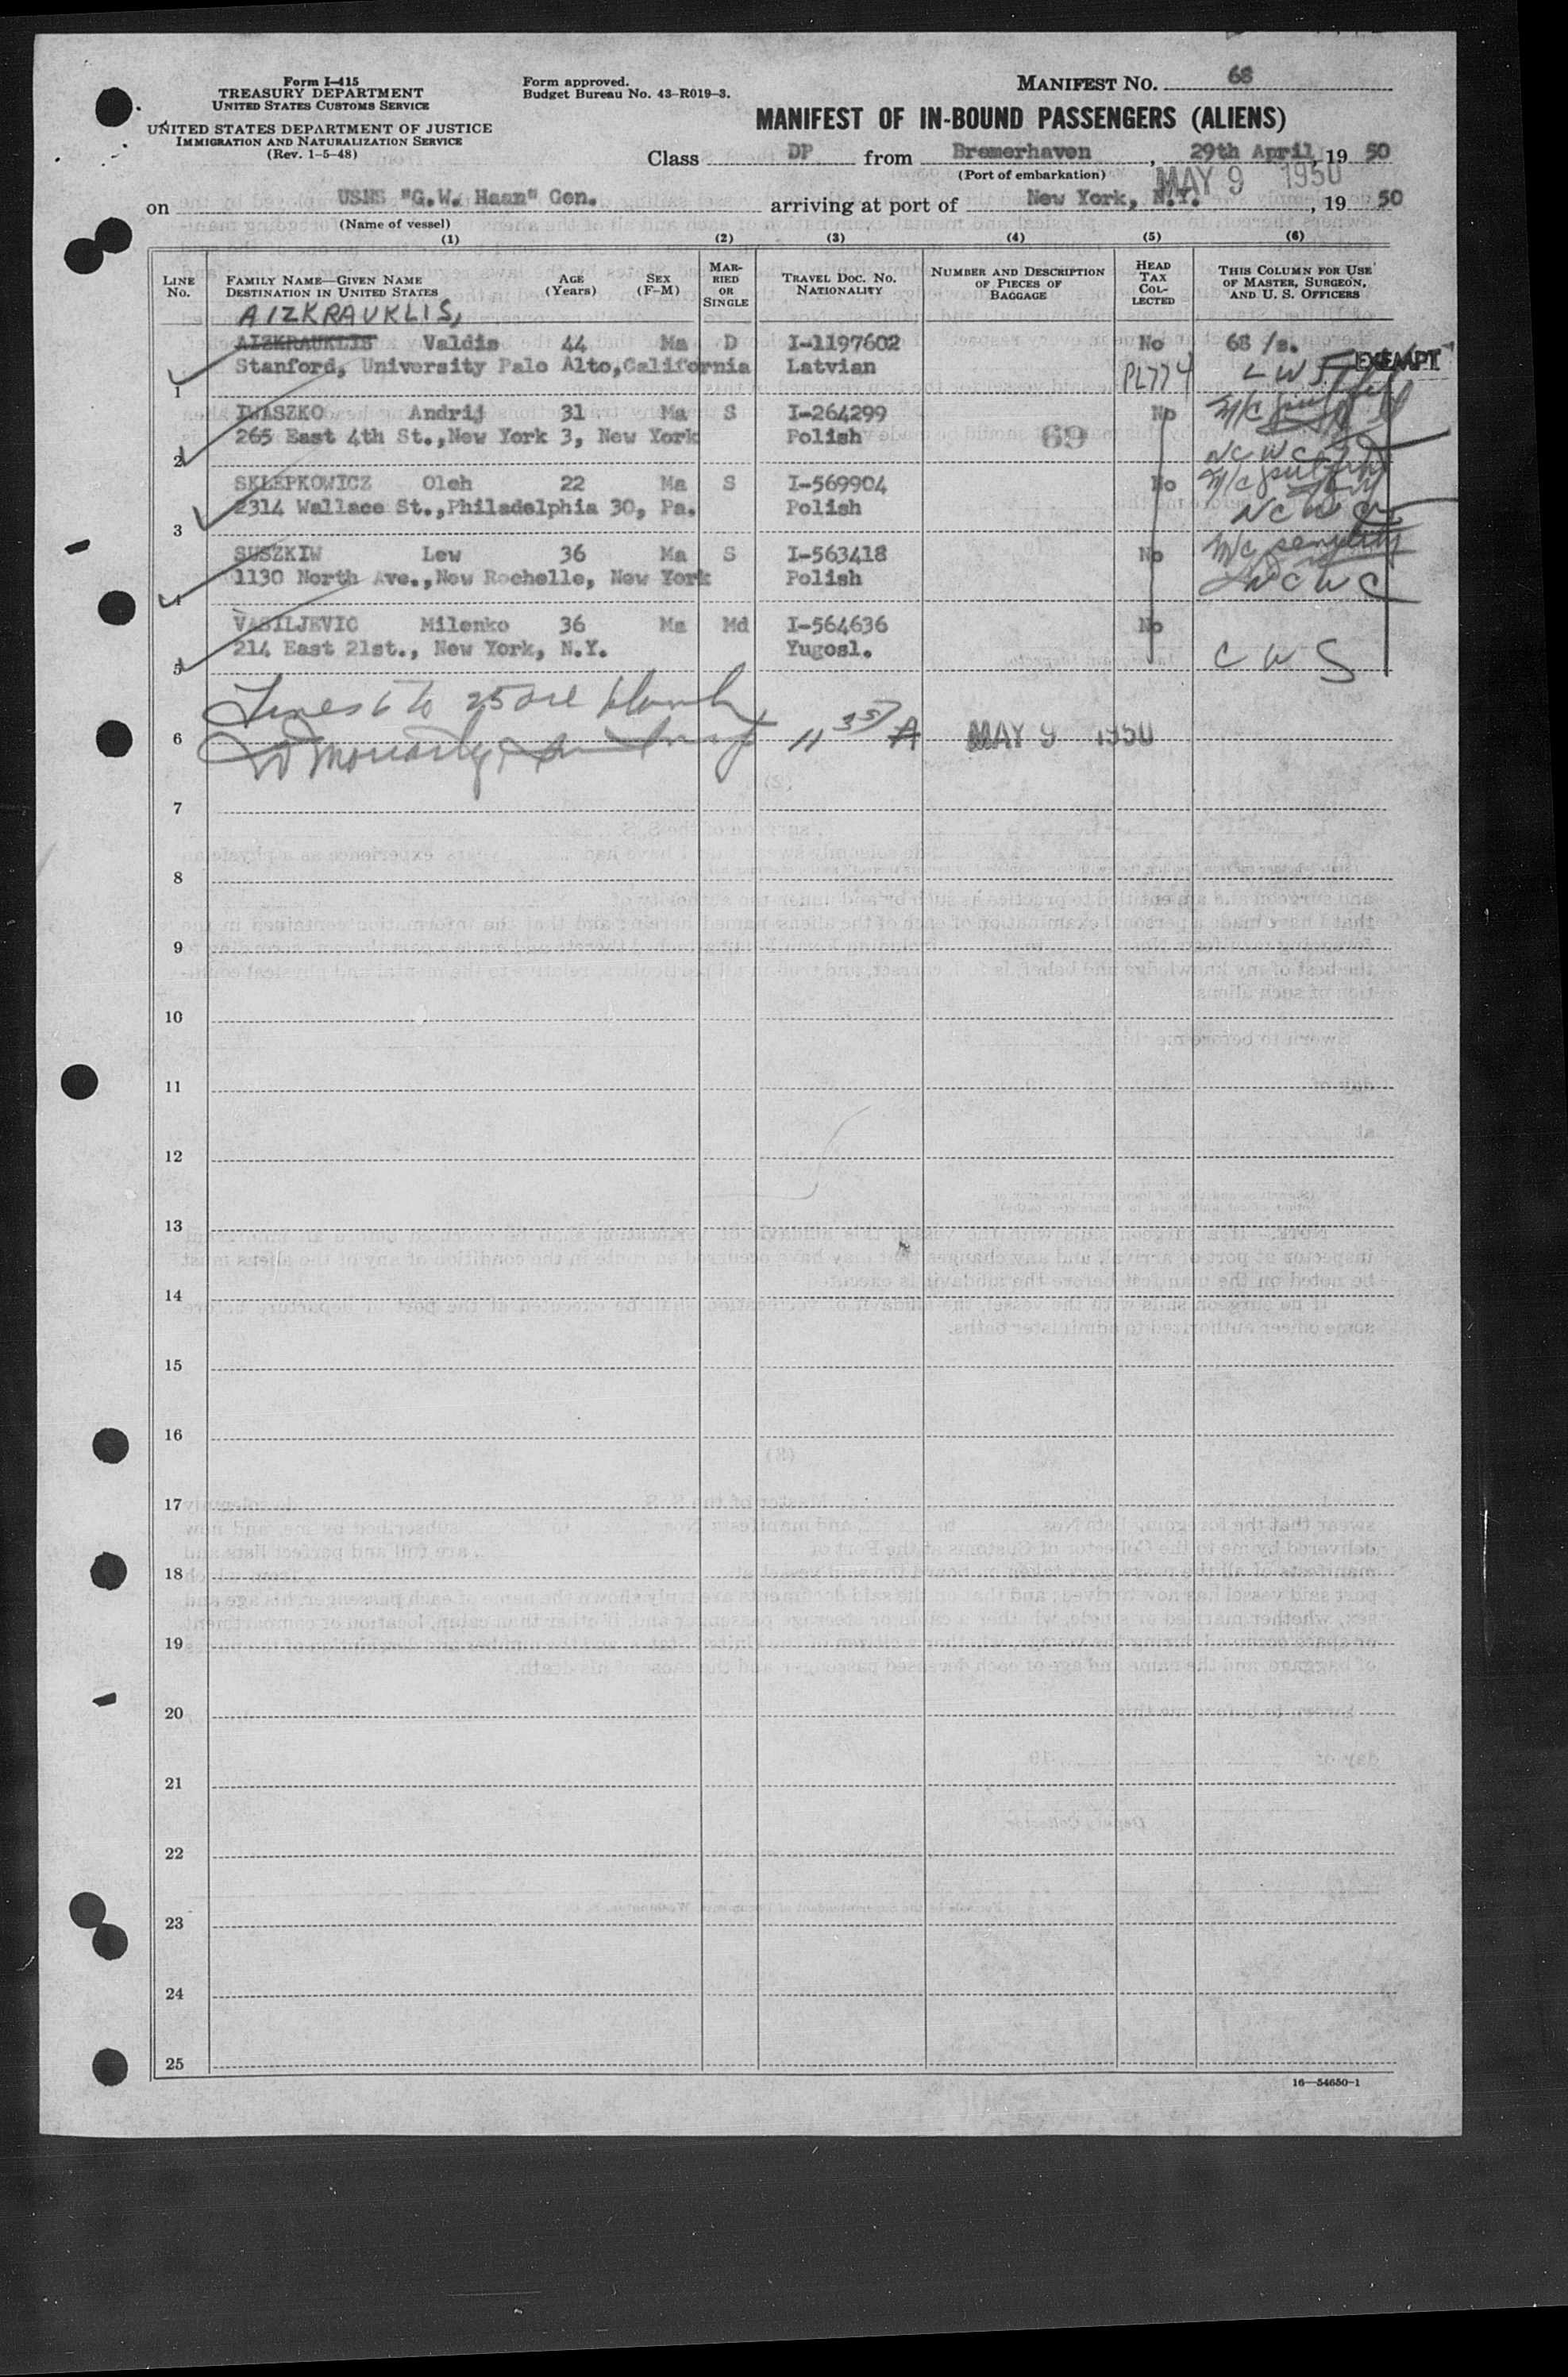 Form I-415
TREASURY DEPARTMENT
UNITED STATES CUSTOMS SERVICE
UNITED STATES DEPARTMENT OF JUSTICE
IMMIGRATION AND NATURALIZATION SERVICE
(Rev. 1-5-48)
Form approved.
Budget Bureau No. 43-R019-3.
MANIFEST NO. 68
MANIFEST OF IN-BOUND PASSENGERS (ALIENS)
Class DP from Bremerhaven, 29th April, 19 50
(Port of embarkation)
MAY 9 1950
on USNS "G.W. Haan" Gen. arriving at port of New York, N.Y., 19 50
(Name of vessel)
(1) (2) (3) (4) (5) (6)
LINE No. FAMILY NAME—GIVEN NAME DESTINATION IN UNITED STATES AGE (Years) SEX (F-M) MARRIED OR SINGLE TRAVEL DOC. NO. NATIONALITY NUMBER AND DESCRIPTION OF PIECES OF BAGGAGE HEAD TAX COLLECTED THIS COLUMN FOR USE OF MASTER, SURGEON, AND U. S. OFFICERS
AIZKRAUKLIS,
AIZKRAUKLIS Valdis 44 Ma D I-1197602 No 68 /s.
1 Stanford, University Palo Alto, California Latvian PL774 LWF EXEMPT
IWASZKO Andrij 31 Ma S I-264299 No M/c
2 265 East 4th St., New York 3, New York Polish 69 NCWC
SKLEPKOWICZ Oleh 22 Ma S I-569904 No M/c
3 2314 Wallace St., Philadelphia 30, Pa. Polish NCWC
SUSZKIW Lew 36 Ma S I-563418 No M/c
4 1130 North Ave., New Rochelle, New York Polish NCWC
VASILJEVIC Milenko 36 Ma Md I-564636 No
5 214 East 21st., New York, N.Y. Yugosl. CWS
Lines 6 to 25 are blank
6 Moriarty 11 35 A MAY 9 1950
7
8
9
10
11
12
13
14
15
16
17
18
19
20
21
22
23
24
25
16—54650-1